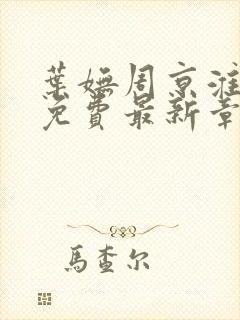 葉嫵周京淮
免費最新章
馬查尔